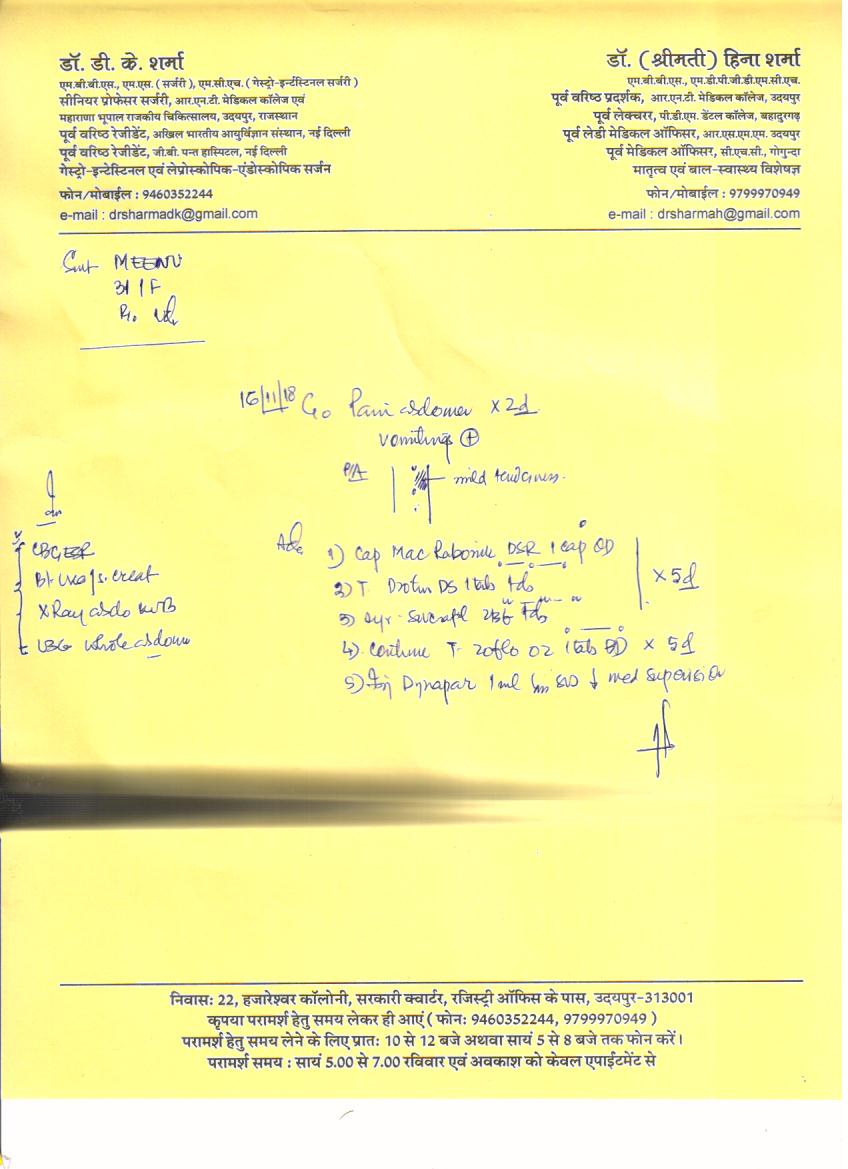 डॉ. डी. के. शर्मा
एम.बी.बी.एस., एम.एस. ( सर्जरी ), एम.सी.एच. ( गेस्ट्रो-इन्टेंस्टिनल सर्जरी )
सीनियर प्रोफेसर सर्जरी, आर.एन.टी. मेडिकल कॉलेज एवं
महाराणा भूपाल राजकीय चिकित्सालय, उदयपुर, राजस्थान
पूर्व वरिष्ठ रेजीडेंट, अखिल भारतीय आयुर्विज्ञान संस्थान, नई दिल्ली
पूर्व वरिष्ठ रेजीडेंट, जी.बी. पन्त हास्पिटल, नई दिल्ली
गेस्ट्रो-इन्टेस्टिनल एवं लेप्रोस्कोपिक-एंडोस्कोपिक सर्जन
फोन/मोबाईल : 9460352244
e-mail : drsharmadk@gmail.com
डॉ. (श्रीमती) हिना शर्मा
एम.बी.बी.एस., एम.डी.पी.जी.डी.एम.सी.एच.
पूर्व वरिष्ठ प्रदर्शक, आर.एन.टी. मेडिकल कॉलेज, उदयपुर
पूर्व लेक्चरर, पी.डी.एम. डेंटल कॉलेज, बहादुरगढ़
पूर्व लेडी मेडिकल ऑफिसर, आर.एस.एम.एम. उदयपुर
पूर्व मेडिकल ऑफिसर, सी.एच.सी., गोगुन्दा
मातृत्व एवं बाल-स्वास्थ्य विशेषज्ञ
फोन/मोबाईल : 9799970949
e-mail : drsharmah@gmail.com
Smt MEENU
31 / F
16/11/18 C/o Pain abdomen x 2d
vomitings +
P/A mild tenderness.
Adv
1) Cap Mac Rabonik DSR 1 cap OD
2) T. Drotin DS 1 tab tds
x 5d
3) Syr. Sucrafil tds
4) Continue T. Zoflo OZ 1 tab BD x 5d
5) Inj Dynapar 1 ml Im med supervision
CBC
Bl urea/s. creat
X Ray abdo KUB
USG whole abdomen
निवास: 22, हजारेश्वर कॉलोनी, सरकारी क्वार्टर, रजिस्ट्री ऑफिस के पास, उदयपुर-313001
कृपया परामर्श हेतु समय लेकर ही आएं ( फोन: 9460352244, 9799970949 )
परामर्श हेतु समय लेने के लिए प्रात: 10 से 12 बजे अथवा सायं 5 से 8 बजे तक फोन करें।
परामर्श समय : सायं 5.00 से 7.00 रविवार एवं अवकाश को केवल एपाईंटमेंट से